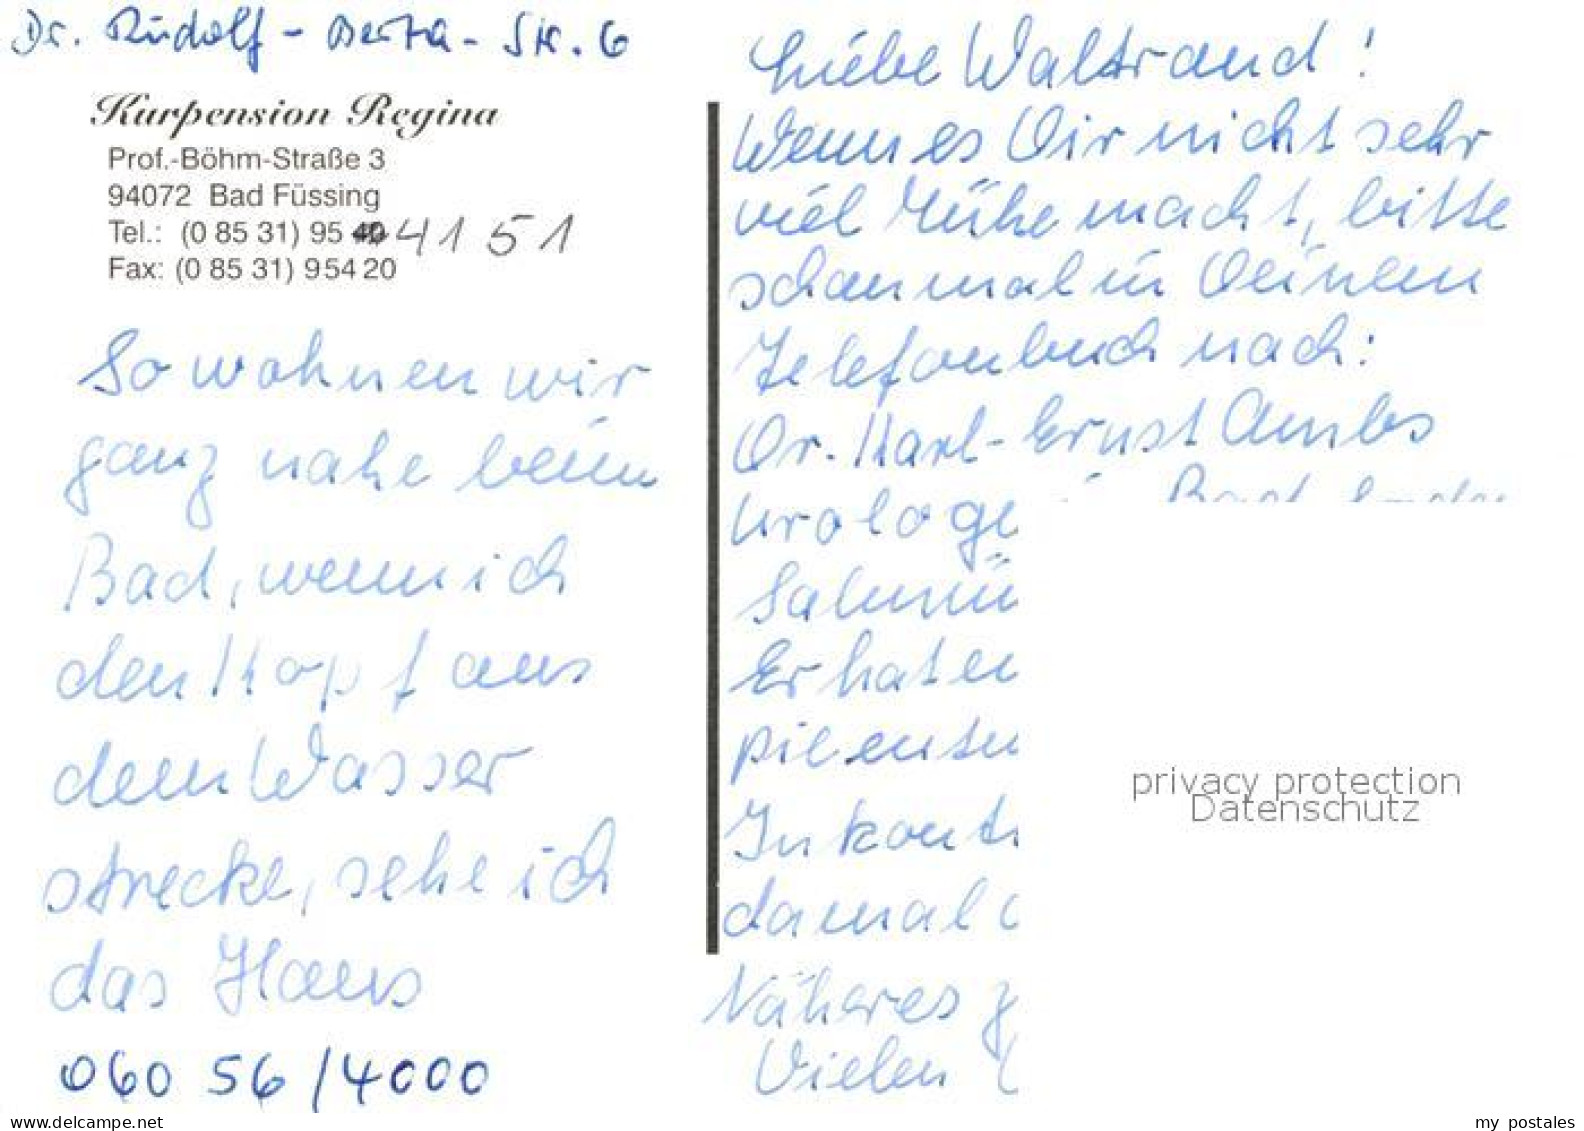 Dr. Rudolf-Berta-Str. 6
Kurpension Regina
Prof.-Böhm-Straße 3
94072 Bad Füssing
Tel.: (0 85 31) 95 40 41 51
Fax: (0 85 31) 954 20
So wohnen wir
ganz nahe beim
Bad, wenn ich
den Kopf aus
dem Wasser
strecke, sehe ich
das Haus
060 56/4000
Liebe Waltraud!
Wenn es Dir nicht sehr
viel Mühe macht, bitte
schau mal in Deinem
Telefonbuch nach:
Dr. Karl-Ernst Ambs
Urologe
Salmü
Er hat
Inkont
damal
Näheres
Vielen
privacy protection
Datenschutz
delcampe.net
my postales